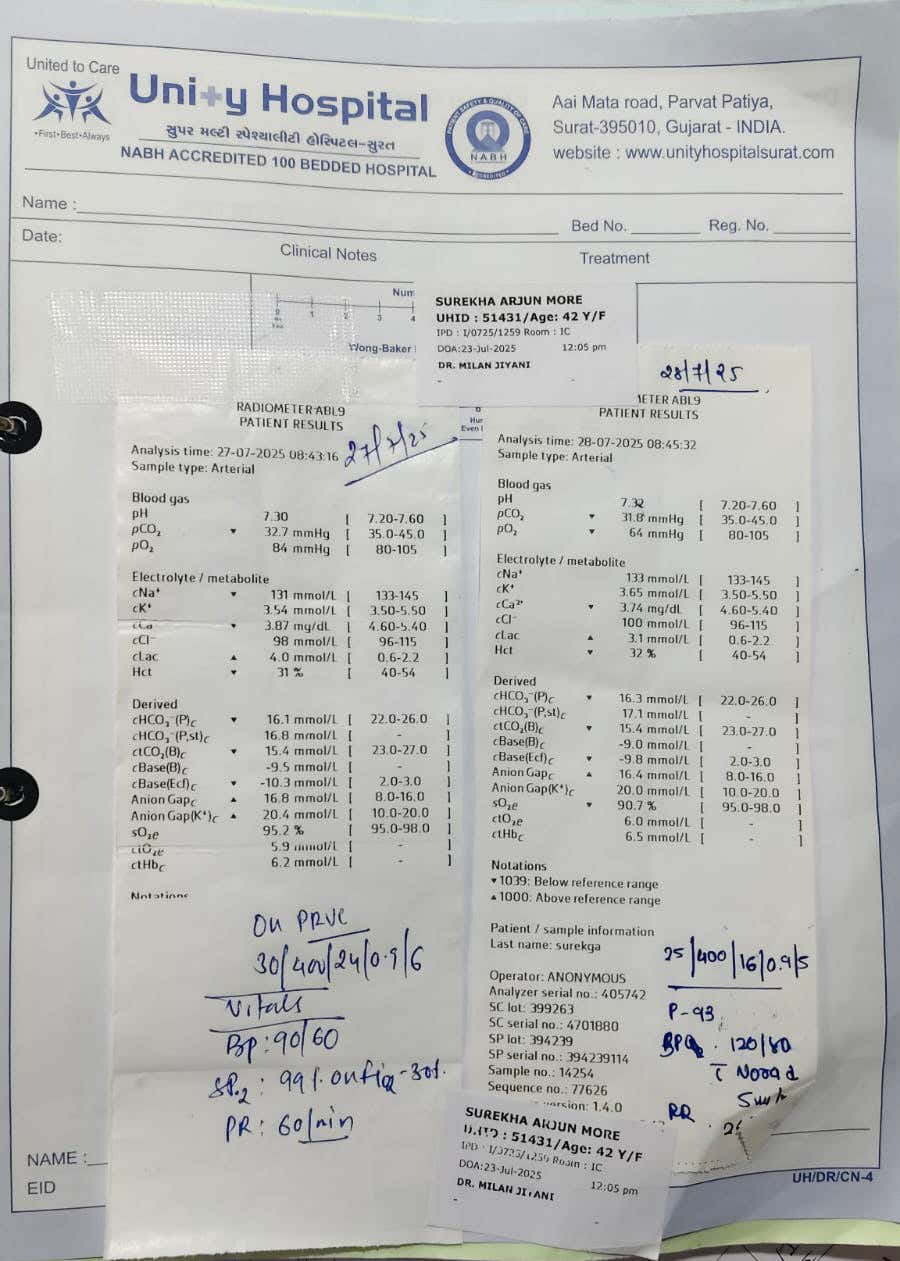 United to Care
Unity Hospital
•First•Best•Always
સુપર મલ્ટી સ્પેશ્યાલીટી હોસ્પિટલ-સુરત
NABH ACCREDITED 100 BEDDED HOSPITAL
PATIENT SAFETY & QUALITY OF CARE
NABH
ACCREDITED
Aai Mata road, Parvat Patiya,
Surat-395010, Gujarat - INDIA.
website : www.unityhospitalsurat.com
Name :
Bed No.
Reg. No.
Date:
Clinical Notes
Treatment
Num
0 1 2 3 4
Wong-Baker
SUREKHA ARJUN MORE
UHID : 51431/Age: 42 Y/F
IPD : I/0725/1259 Room : IC
DOA:23-Jul-2025 12:05 pm
DR. MILAN JIYANI
-
RADIOMETER ABL9
PATIENT RESULTS
27/7/25
Analysis time: 27-07-2025 08:43:16
Sample type: Arterial
Blood gas
pH 7.30 [ 7.20-7.60 ]
pCO₂ ▼ 32.7 mmHg [ 35.0-45.0 ]
pO₂ 84 mmHg [ 80-105 ]
Electrolyte / metabolite
cNa⁺ ▼ 131 mmol/L [ 133-145 ]
cK⁺ 3.54 mmol/L [ 3.50-5.50 ]
cCa ▼ 3.87 mg/dL [ 4.60-5.40 ]
cCl⁻ 98 mmol/L [ 96-115 ]
cLac ▲ 4.0 mmol/L [ 0.6-2.2 ]
Hct ▼ 31 % [ 40-54 ]
Derived
cHCO₃⁻(P)c ▼ 16.1 mmol/L [ 22.0-26.0 ]
cHCO₃⁻(P,st)c 16.8 mmol/L [ - ]
ctCO₂(B)c ▼ 15.4 mmol/L [ 23.0-27.0 ]
cBase(B)c -9.5 mmol/L [ - ]
cBase(Ecf)c ▼ -10.3 mmol/L [ 2.0-3.0 ]
Anion Gapc ▲ 16.8 mmol/L [ 8.0-16.0 ]
Anion Gap(K⁺)c ▲ 20.4 mmol/L [ 10.0-20.0 ]
sO₂e 95.2 % [ 95.0-98.0 ]
ctO₂e 5.9 mmol/L [ - ]
ctHbc 6.2 mmol/L [ - ]
Notations
On PRVC
30/400/24/0.9/6
Vitals
BP: 90/60
SP₂: 99% on fio₂-30%.
PR: 60/min
28/7/25
METER ABL9
PATIENT RESULTS
Analysis time: 28-07-2025 08:45:32
Sample type: Arterial
Blood gas
pH 7.32 [ 7.20-7.60 ]
pCO₂ ▼ 31.8 mmHg [ 35.0-45.0 ]
pO₂ ▼ 64 mmHg [ 80-105 ]
Electrolyte / metabolite
cNa⁺ 133 mmol/L [ 133-145 ]
cK⁺ 3.65 mmol/L [ 3.50-5.50 ]
cCa²⁺ ▼ 3.74 mg/dL [ 4.60-5.40 ]
cCl⁻ 100 mmol/L [ 96-115 ]
cLac ▲ 3.1 mmol/L [ 0.6-2.2 ]
Hct ▼ 32 % [ 40-54 ]
Derived
cHCO₃⁻(P)c ▼ 16.3 mmol/L [ 22.0-26.0 ]
cHCO₃⁻(P,st)c 17.1 mmol/L [ - ]
ctCO₂(B)c ▼ 15.4 mmol/L [ 23.0-27.0 ]
cBase(B)c -9.0 mmol/L [ - ]
cBase(Ecf)c ▼ -9.8 mmol/L [ 2.0-3.0 ]
Anion Gapc ▲ 16.4 mmol/L [ 8.0-16.0 ]
Anion Gap(K⁺)c 20.0 mmol/L [ 10.0-20.0 ]
sO₂e ▼ 90.7 % [ 95.0-98.0 ]
ctO₂e 6.0 mmol/L [ - ]
ctHbc 6.5 mmol/L [ - ]
Notations
▼1039: Below reference range
▲1000: Above reference range
Patient / sample information
Last name: surekga
Operator: ANONYMOUS
Analyzer serial no.: 405742
SC lot: 399263
SC serial no.: 4701880
SP lot: 394239
SP serial no.: 394239114
Sample no.: 14254
Sequence no.: 77626
version: 1.4.0
25/400/16/0.9/5
P-93
BP 120/80
c̄ Norad
RR
SUREKHA ARJUN MORE
UHID : 51431/Age: 42 Y/F
IPD : I/0725/1259 Room : IC
DOA:23-Jul-2025 12:05 pm
DR. MILAN JIYANI
-
NAME :
EID
UH/DR/CN-4